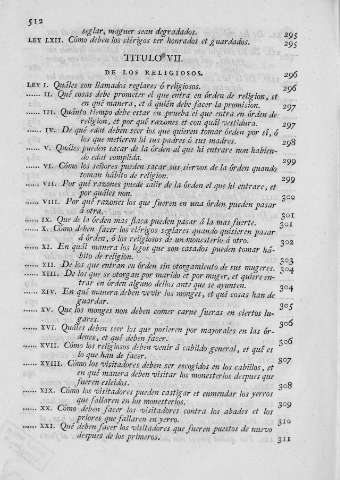 512
seglar, maguer sean degradados. 295
LEY LXII. Cómo deben los clérigos ser honrados et guardados. 295
TITULO VII.
DE LOS RELIGIOSOS. 296
LEY I. Quáles son llamados reglares ó religiosos. 296
...... II. Qué cosas debe prometer el que entra en órden de religion, et
en qué manera, et á quién debe facer la promision. 297
...... III. Quánto tiempo debe estar en prueba el que entra en órden de
religion, et por qué razones et con quál vestidura. 297
...... IV. De qué edat deben seer los que quieren tomar órden por sí, ó
los que metieren hi sus padres ó sus madres. 298
...... V. Quáles pueden sacar de la órden al que hi entrare non habien-
do edat complida. 299
...... VI. Cómo los señores pueden sacar sus siervos de la órden quando
toman hábito de religion. 299
...... VII. Por qué razones puede salir de la órden el que hi entrare, et
por quáles non. 299
...... VIII. Por qué razones los que fueren en una órden pueden pasar
á otra. 300
...... IX. Que de la órden mas flaca pueden pasar á la mas fuerte. 301
...... X. Cómo deben facer los clérigos seglares quando quisieren pasar 301
á órden, ó los religiosos de un monesterio á otro. 302
...... XI. En quál manera los legos que son casados pueden tomar há-
bito de religion. 303
...... XII. De los que entran en órden sin otorgamiento de sus mugeres. 304
...... XIII. De los que se otorgan por marido et por muger, et quieren en-
trar en órden alguno dellos ante que se ayunten. 304
...... XIV. En qué manera deben vevir los monges, et qué cosas han de
guardar. 305
...... XV. Que los monges non deben comer carne fueras en ciertos lu-
gares. 306
...... XVI. Quáles deben seer los que posieren por mayorales en las ór-
denes, et qué deben facer. 306
...... XVII. Cómo los religiosos deben venir á cabildo general, et qué es
lo que han de facer. 307
...... XVIII. Cómo los visitadores deben ser escogidos en los cabillos, et
en qué manera deben visitar los monesterios despues que
fueren esleidos. 308
...... XIX. Cómo los visitadores pueden castigar et enmendar los yerros
que fallaren en los monesterios. 309
...... XX. Cómo deben facer los visitadores contra los abades et los
priores que fallaren en yerro. 310
...... XXI. Qué deben facer los visitadores que fueren puestos de nuevo
despues de los primeros. 311